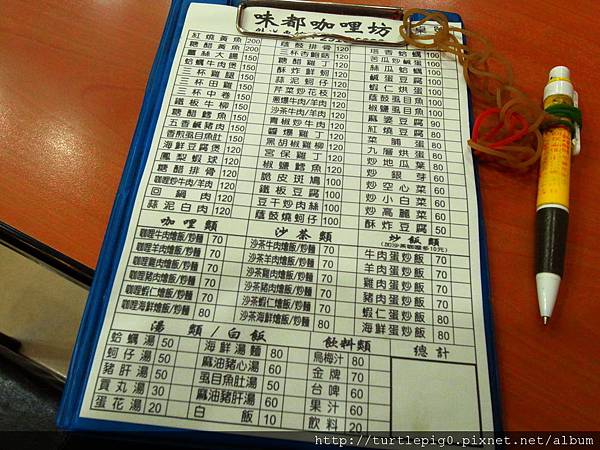 味都咖哩坊
紅燒黃魚 200
糖醋黃魚 200
薑絲大腸 150
蛤蠣牛肉煲 150
三杯雞腿 150
三杯田雞 150
三杯中卷 150
鐵板牛柳 150
糖醋鱈魚 150
五香鹹豬肉 150
香煎虱目魚肚 150
海鮮豆腐煲 120
鳳梨蝦球 120
糖醋排骨 120
咖哩炒牛肉/羊肉 120
回鍋肉 120
蒜泥白肉 120
蔭鼓排骨 120
三杯杏鮑菇 120
糖醋雞丁 120
酥炸鮮蚵 120
蒜泥蚵仔 120
芹菜炒花枝 120
蔥爆牛肉/羊肉 120
沙茶牛肉/羊肉 120
青椒炒牛肉 120
醬爆雞丁 120
黑胡椒雞柳 120
宮保雞丁 120
椒鹽鱈魚 120
脆皮斑鳩 100
鐵板豆腐 100
豆干炒肉絲 100
蔭鼓燒蚵仔 100
塔香蛤蠣 100
苦瓜炒鹹蛋 100
絲瓜蛤蠣 100
鹹蛋豆腐 100
蝦仁烘蛋 100
蔭鼓虱目魚 100
椒鹽虱目魚 100
麻婆豆腐 90
紅燒豆腐 80
菜脯蛋 80
九層烘蛋 80
炒地瓜葉 60
炒銀芽 60
炒空心菜 60
炒小白菜 60
炒高麗菜 60
酥炸豆腐 50
咖哩類
咖哩牛肉燴飯/炒麵 70
咖哩羊肉燴飯/炒麵 70
咖哩雞肉燴飯/炒麵 70
咖哩豬肉燴飯/炒麵 70
咖哩蝦仁燴飯/炒麵 70
咖哩海鮮燴飯/炒麵 80
沙茶類
沙茶牛肉燴飯/炒麵 70
沙茶羊肉燴飯/炒麵 70
沙茶雞肉燴飯/炒麵 70
沙茶豬肉燴飯/炒麵 70
沙茶蝦仁燴飯/炒麵 70
沙茶海鮮燴飯/炒麵 80
炒飯類
(加沙茶咖哩多10元)
牛肉蛋炒飯 80
羊肉蛋炒飯 80
雞肉蛋炒飯 80
豬肉蛋炒飯 80
蝦仁蛋炒飯 80
海鮮蛋炒飯 80
湯類/白飯
蛤蠣湯 50
蚵仔湯 50
豬肝湯 50
貢丸湯 30
蛋花湯 20
海鮮湯麵 80
麻油豬心湯 60
虱目魚肚湯 50
麻油豬肝湯 60
白飯 10
飲料類
烏梅汁 80
金牌 70
台啤 60
果汁 60
飲料 20
總計
http://turtlepig0.pixnet.net/album